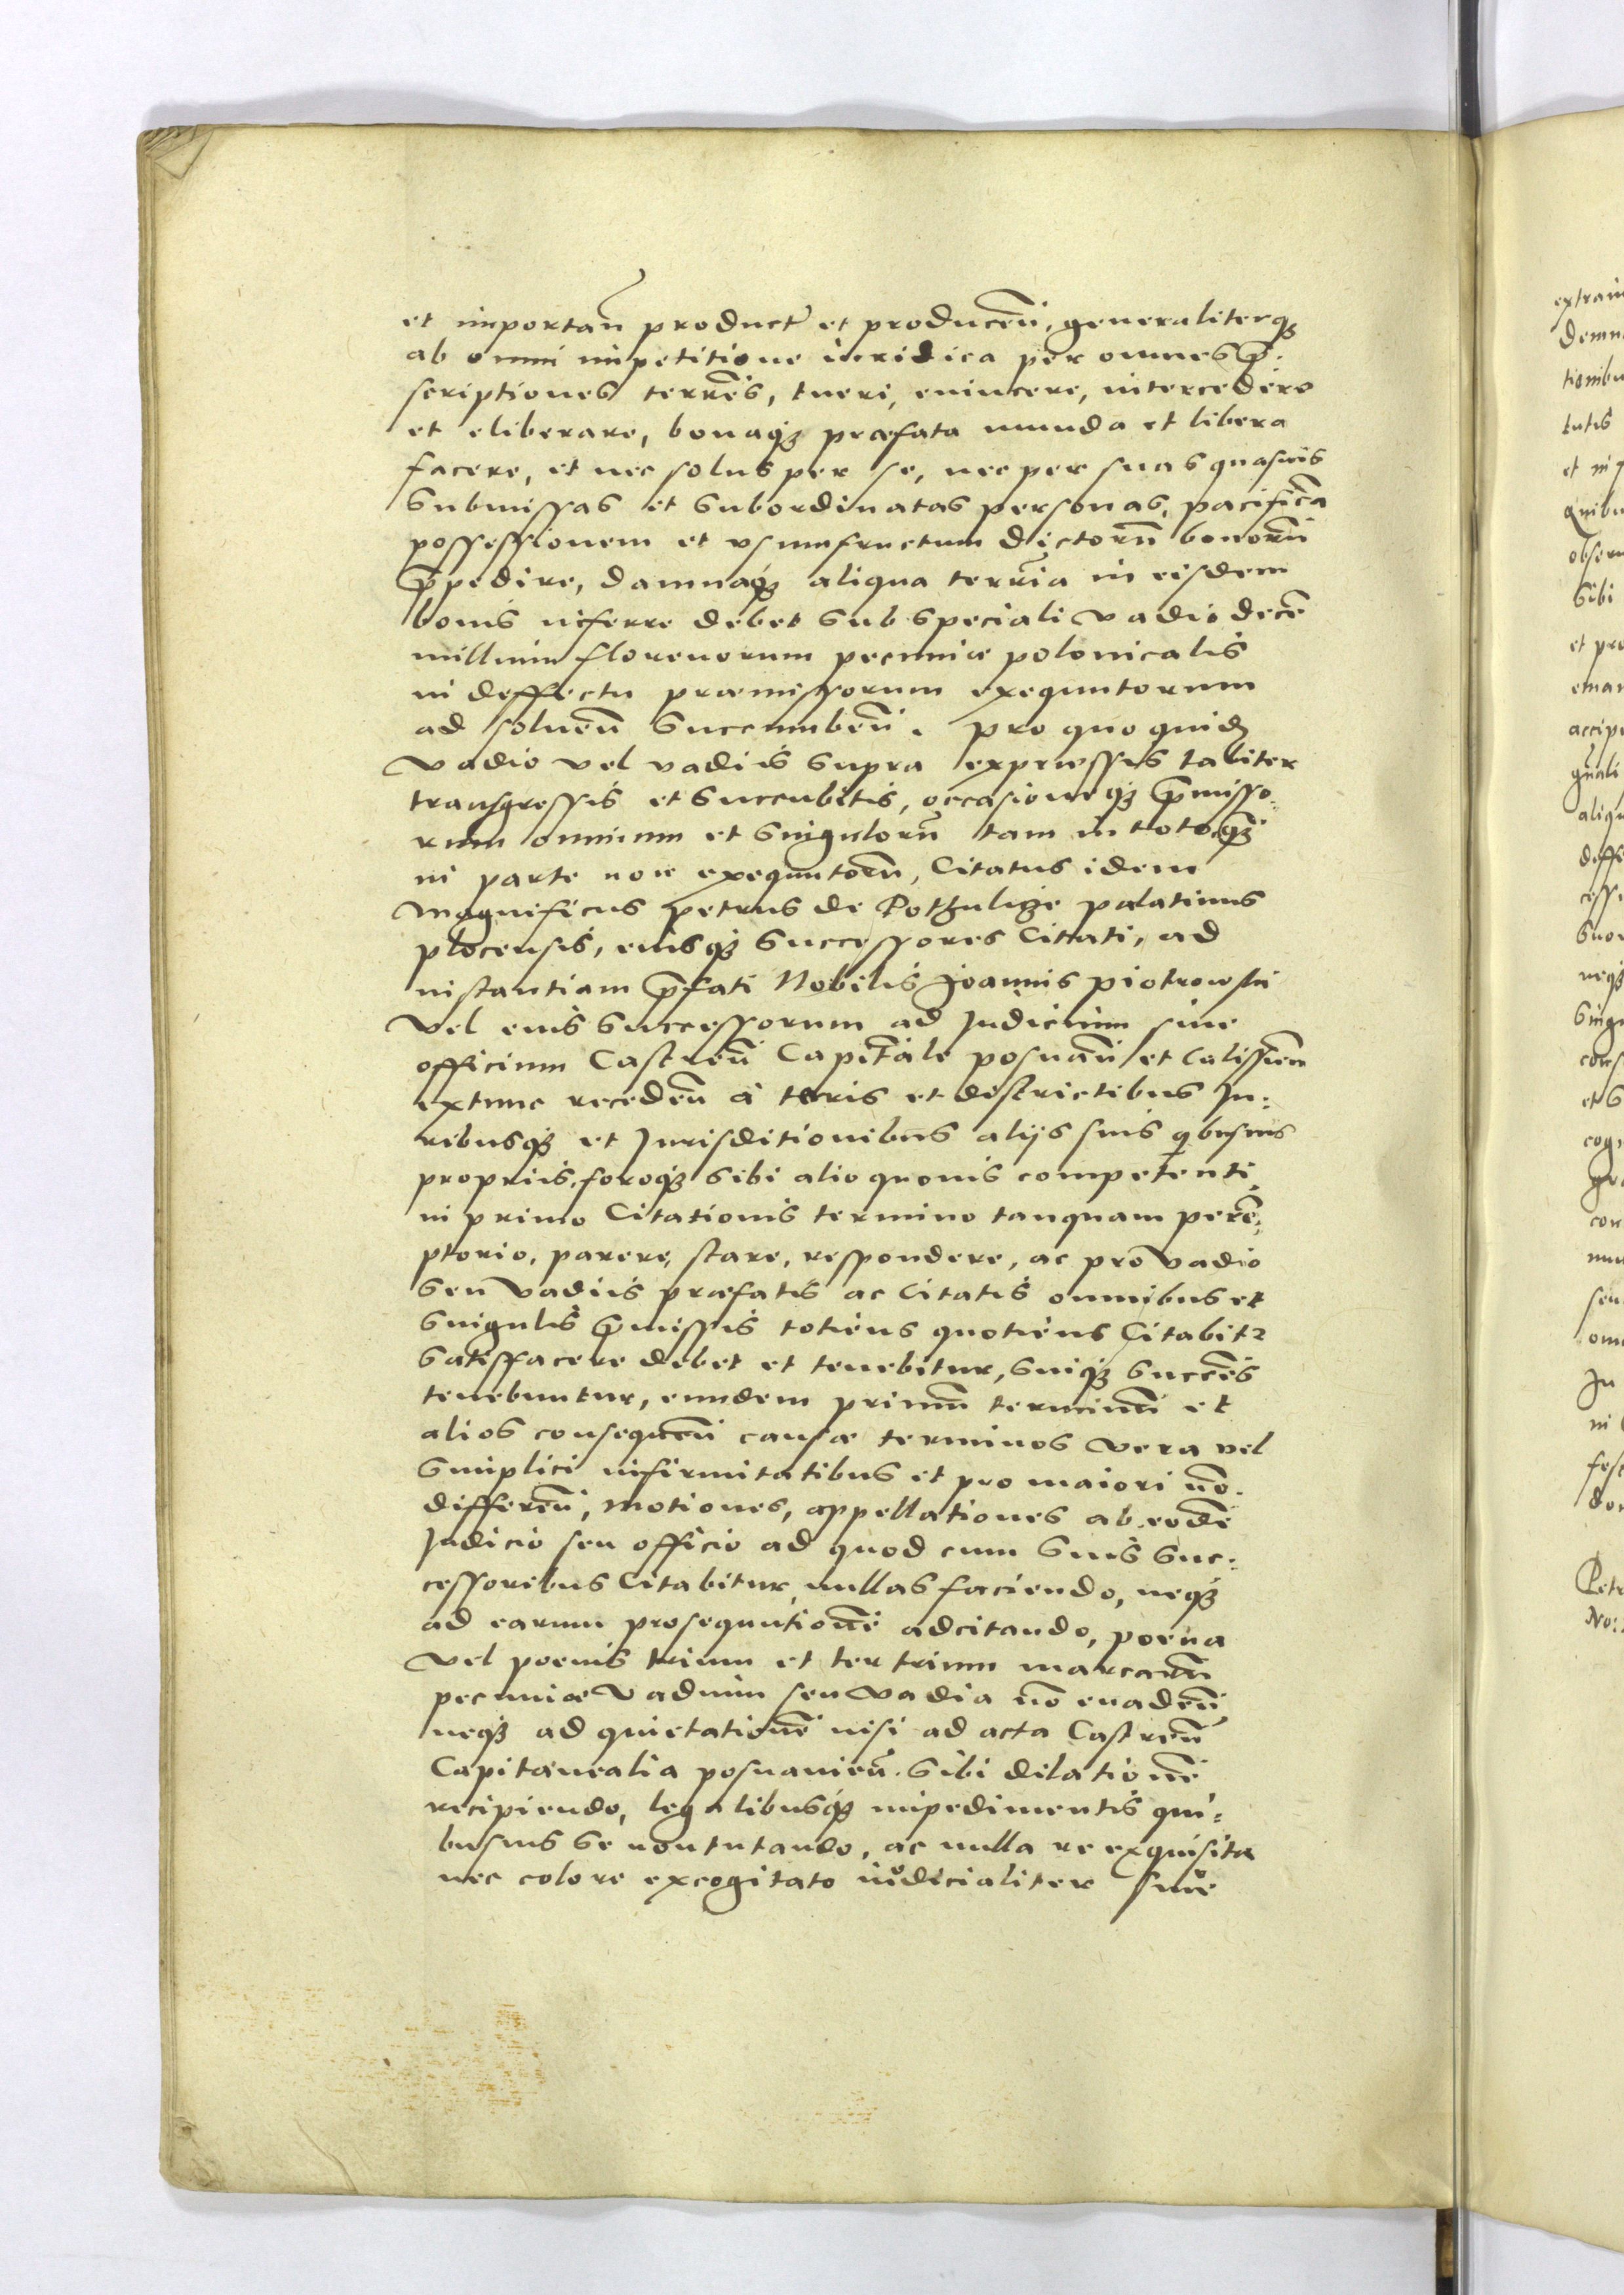 et importan̄ product̄ et producen̄, generaliterqꝫ
ab omni impetitione iuridica per omnes p̄:
scriptiones terrēs, tueri, euincere, intercedere
et eliberare, bonaqꝫ præfata munda et libera
facere, et nec solus per se, nec per suas quasuis
submissas et subordinatas personas, pacificā
possessionem et vsumfructum dictorū bonorū
p̄pedire, damnaqꝫ aliqua terrēia in eisdem
bonis inferre debet sub speciali vadio decē
millium florenorum pecuniæ polonicalis
in deffectu præmissorum exequutorum
ad soluen̄ succumben̄. pro quo quid
vadio vel vadiis supra expressis taliter
transgressis et succubitis, occasioneqꝫ p̄misso:
rum omnium et singulorū tam in toto q̄
in parte non exequutorū, Citatus idem
Magnificus petrus de Pothulize palatinus
plocensis, eiusqꝫ successores Citati, ad
instantiam p̄fati Nobilis Joannis piotrowski
vel eius successorum ad Judicium siue
officium Castren̄ Capitāle posnan̄ et Calissien̄
extunc receden̄ à teris et districtibus Ju:
ribusqꝫ et Jurisditionibus alijs suis qbusuis
propriis, foroqꝫ sibi alio quouis competenti
in primo Citationis termino tanquam perē:
ptorio, parere, stare, respondere, ac pro vadio
seu vadiis præfatis ac Citatis omnibus et
singulis p̄missis totiens quotiens Citabitr
satisffacere debet et tenebitur, suiqꝫ succēs
tenebuntur, eundem primū terminū et
alios consequen̄ causæ terminos vera vel
simplici infirmitatibus et pro maiori nō
differen̄, motiones, appellationes ab eodē
Judicio seu officio ad quod cum suis suc:
cessoribus Citabitur, nullas faciendo, neqꝫ
ad earum prosequutionē adcitando, poena
vel poenis trium et ter trium marcarū
pecuniæ vadium seu vadia nō euaden̄
neqꝫ ad quietationē nisi ad acta Castren̄
Capitanealia posnanien̄. sibi dilationē
recipiendo, legalibusqꝫ impedimentis qui:
busuis se non tutando, ac nulla re exquisita
nec colore excogitato iudicialiter siue